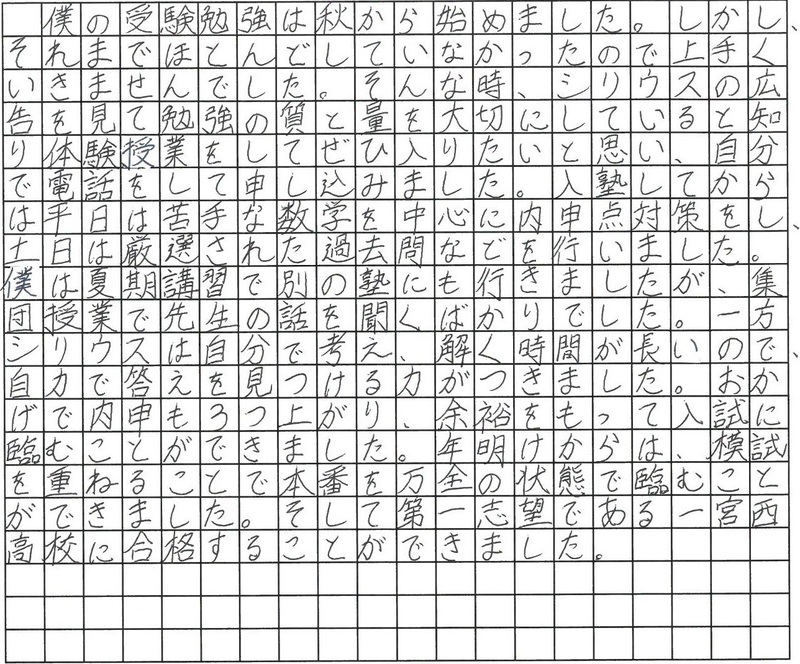 僕の受験勉強は秋から始めました。しかし、
それまでほとんどしていなかったので上手く
いきませんでした。そんな時、シリウスの広
告を見て勉強の質と量を大切にしていると知
り体験授業をしてぜひ入りたいと思い、自分
で電話をして申し込みました。入塾してから
は平日は苦手な数学を中心に内申点対策をし、
土日は厳選された過去問などを行いました。
僕は夏期講習で別の塾にも行きましたが、集
団授業で先生の話を聞くばかりでした。一方
シリウスは自分で考え、解く時間が長いので、
自力で答えを見つける力がつきました。おか
げで内申も3つ上がり、余裕をもって入試に
臨むことができました。年明けからは、模試
を重ねることで本番を万全の状態で臨むこと
ができました。そして第一志望である一宮西
高校に合格することができました。